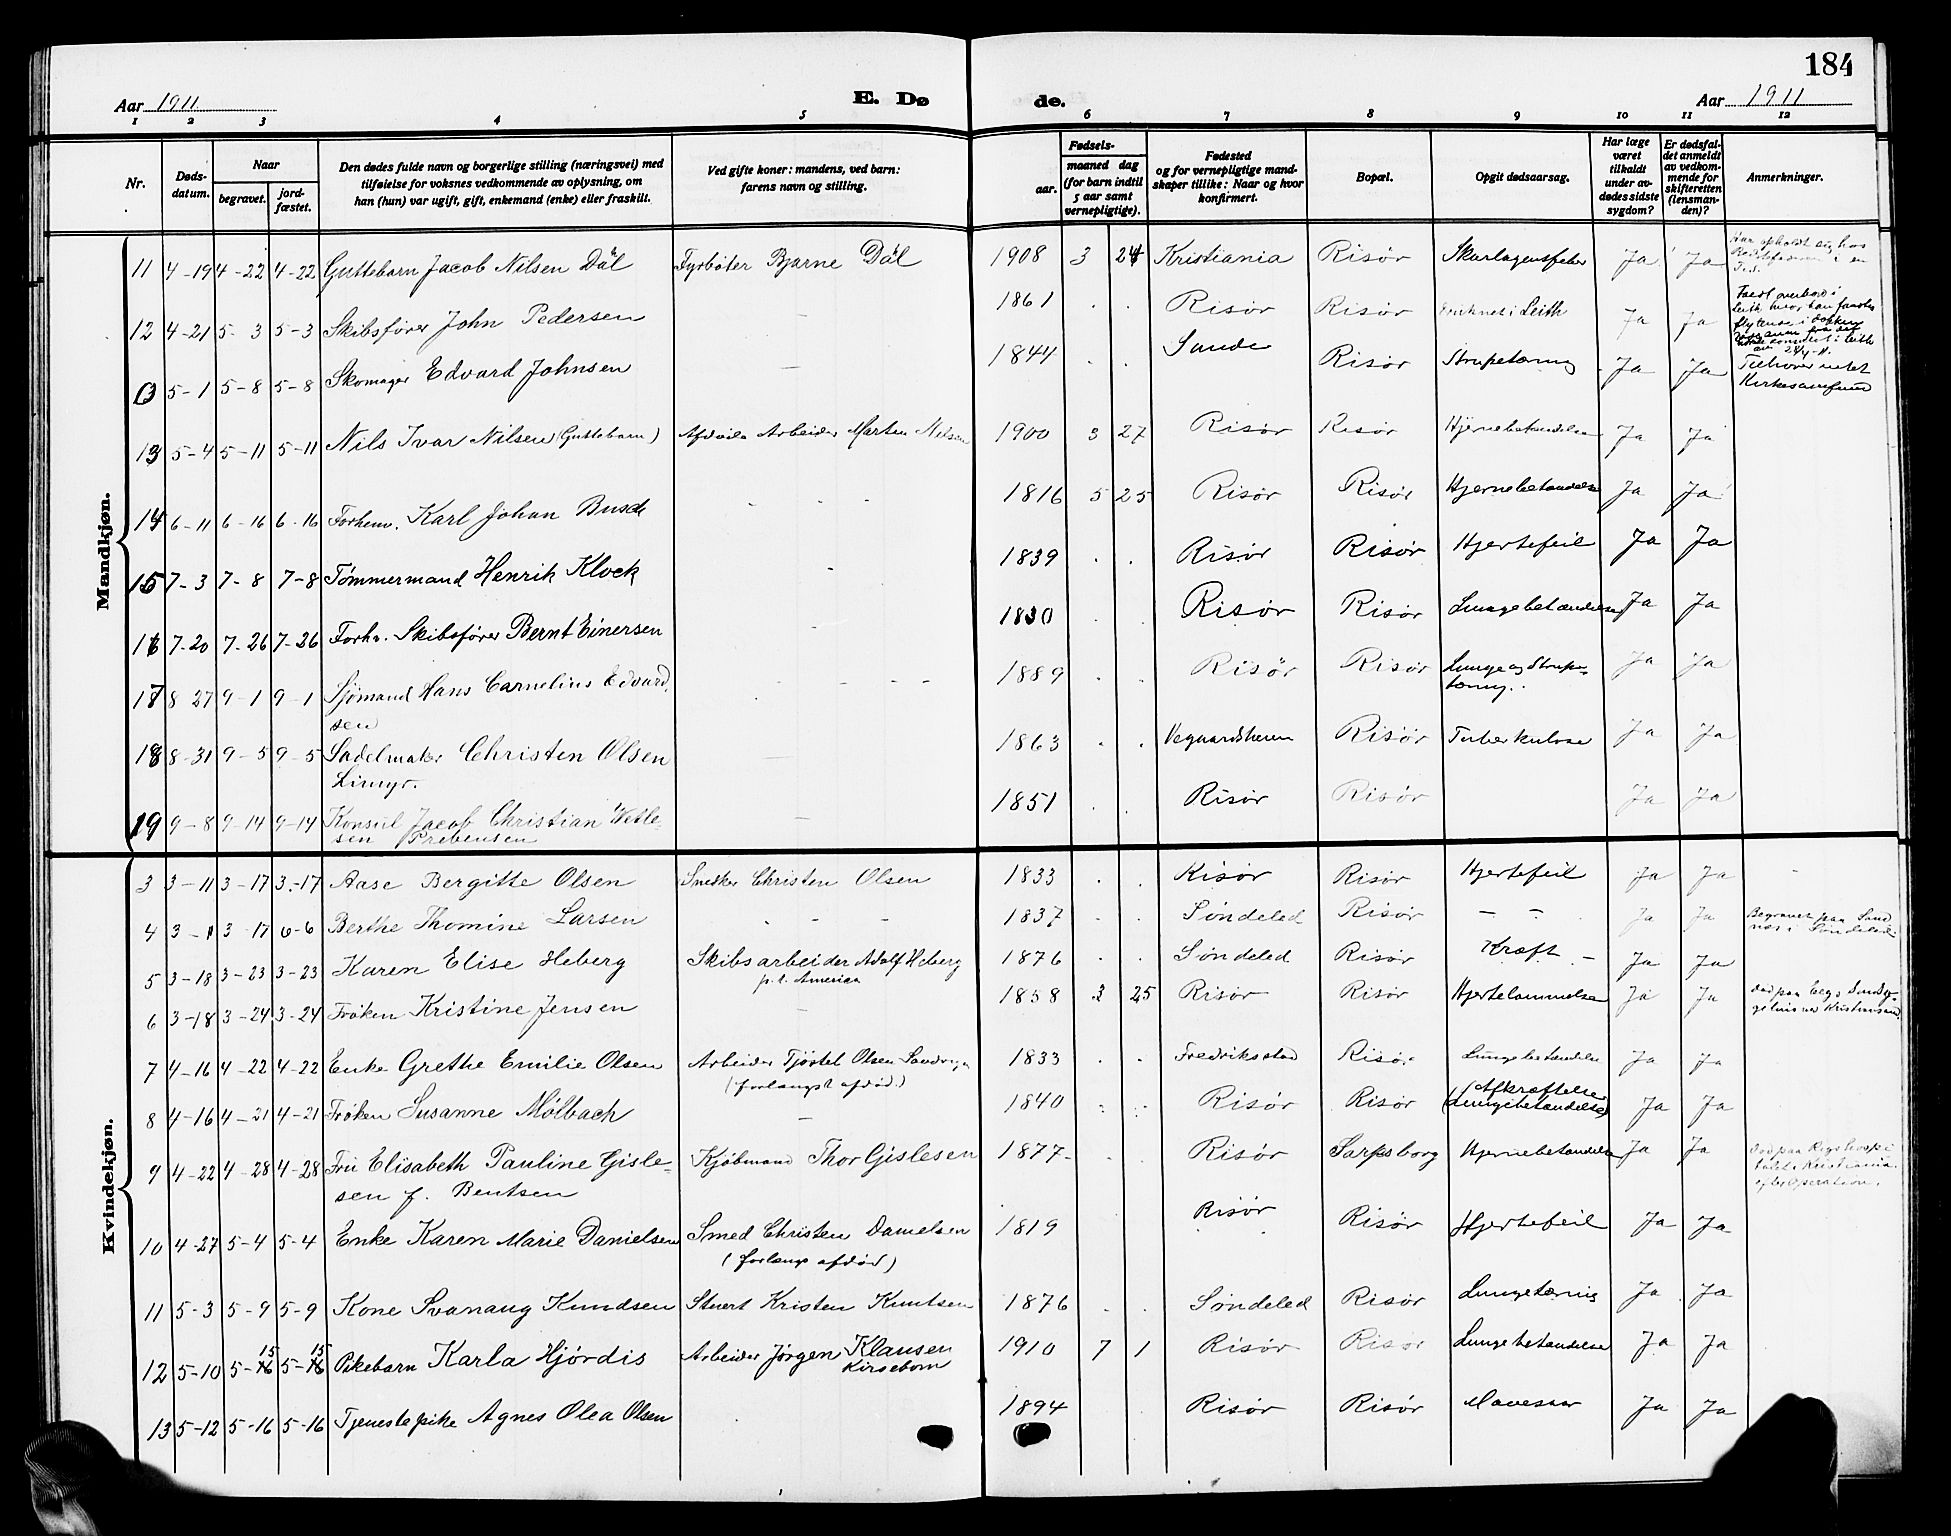 184
Aar 1911. E. Dø de. Aar 1911
1 2 3 4 5 6 7 8 9 10 11 12
Nr. Døds-datum. Naar begravet. jord-fæstet. Den dødes fulde navn og borgerlige stilling (næringsvei) med tilføielse for voksnes vedkommende av oplysning, om han (hun) var ugift, gift, enkemand (enke) eller fraskilt. Ved gifte koner: mandens, ved barn: farens navn og stilling. Fødsels- aar. maaned dag (for barn indtil 5 aar samt vernepligtige). Fødested og for vernepligtige mand-skaper tillike: Naar og hvor konfirmert. Bopæl. Opgit dødsaarsag. Har læge været tilkaldt under av-dødes sidste sygdom? Er dødsfal-det anmeldt av vedkom-mende for skifteretten (lensman-den)? Anmerkninger.
Mandkjøn.
11 4-19 4-22 4-22 Guttebarn Jacob Nilsen Dal Fyrbøter Bjarne Dal 1908 3 24 Kristiania Risør Skarlagensfeber Ja Ja
12 4-21 5-3 5-3 Skibsfører John Pedersen — 1861 . . Risør Risør Druknet i Leith Ja Ja Faldt overbord i Leith hvor han fandtes flytende i dokken
5-1 5-8 5-8 Skomager Edvard Johnsen — 1844 Sande Risør Strupetæring Ja Ja Tilhører intet Kirkesamfund
13 5-4 5-11 5-11 Nils Ivar Nilsen (Guttebarn) Afdøde Arbeider Marten Nilsen 1900 3 27 Risør Risør Hjernebetændelse Ja Ja
14 6-11 6-16 6-16 Forhenv. Karl Johan Busch - - - 1816 5 25 Risør Risør Hjernebetændelse Ja Ja
15 7-3 7-8 7-8 Tømmermand Henrik Klock - - 1839 . . Risør Risør Hjertefeil Ja Ja
16 7-20 7-26 7-26 Forhv. Skibsfører Bernt Einersen - 1830 . . Risør Risør Lungebetændelse Ja Ja
17 8-27 9-1 9-1 Sjømand Hans Carnelius Edvard-sen - - - - 1889 . . Risør Risør Lunge og Strupe-tæring. Ja Ja
18 8-31 9-5 9-5 Sadelmaker Christen Olsen Limyr. — 1863 . . Vegaardsheien Risør Tuberkulose Ja Ja
19 9-8 9-14 9-14 Konsul Jacob Christian Wetle-sen Prebensen — 1851 . . Risør Risør Ja Ja
Kvindekjøn.
3 3-11 3-17 3-17 Aase Bergitte Olsen Snedker Christen Olsen 1833 . . Risør Risør Hjertefeil Ja Ja -
4 3-11 3-17 6-6 Berthe Thomine Larsen - - - 1837 . . Søndeled Risør - - Ja Ja Begravet paa Sand næs i Søndeled
5 3-18 3-23 3-23 Karen Elise Heberg Skibsarbeider Adolf Heberg p.t. Amerika 1876 . . Søndeled Risør Kræft - Ja Ja
6 3-18 3-24 3-24 Frøken Kristine Jensen — 1858 3 25 Risør Risør Hjertelammelse Ja Ja
7 4-16 4-22 4-22 Enke Grethe Emilie Olsen Arbeider Tjøstel Olsen Sandvigen (forlængst afdød.) 1833 . . Fredriksstad Risør Lungebetændelse Ja Ja
8 4-16 4-21 4-21 Frøken Susanne Mølbach — 1840 . . Risør Risør (Afkræftelse (Lungebetændelse) Ja Ja
9 4-22 4-28 4-28 Fru Elisabeth Pauline Gisle-sen f. Bentsen Kjøbmand Thor Gislesen 1877 - . Risør Sarpsborg Hjernebetændelse Ja Ja Død paa Rigshospi talet Kristiania. efter Operation.
10 4-27 5-4 5-4 Enke Karen Marie Danielsen Smed Christen Danielsen (forlængs afdød) 1819 Risør Risør Hjertefeil Ja Ja
11 5-3 5-9 5-9 Kone Svanaug Knudsen Stuert Kristen Knutsen 1876 . . Søndeled Risør Lungetæring Ja Ja
12 5-10 5-15 5-15 Pikebarn Karla Hjørdis Arbeider Jørgen Klausen Kirsebom 1910 7 1 Risør Risør Lungebetændelse Ja Ja
13 5-12 5-16 5-16 Tjenestepike Agnes Olea Olsen 1894 . . Risør Risør Mavesaar Ja Ja